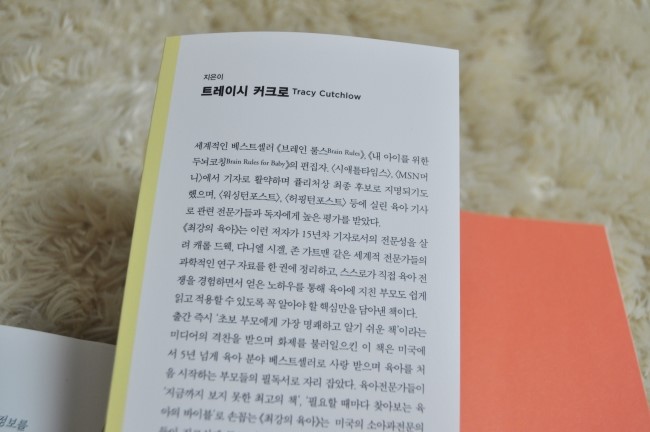 지은이
트레이시 커크로 Tracy Cutchlow
세계적인 베스트셀러 《브레인 룰스Brain Rules》, 《내 아이를 위한
두뇌코칭Brain Rules for Baby》의 편집자. 〈시애틀타임스〉, 〈MSN머
니〉에서 기자로 활약하며 퓰리처상 최종 후보로 지명되기도
했으며, 〈워싱턴포스트〉, 〈허핑턴포스트〉 등에 실린 육아 기사
로 관련 전문가들과 독자에게 높은 평가를 받았다.
《최강의 육아》는 이런 저자가 15년차 기자로서의 전문성을 살
려 캐롤 드웩, 다니엘 시겔, 존 가트맨 같은 세계적 전문가들의
과학적인 연구 자료를 한 권에 정리하고, 스스로가 직접 육아 전
쟁을 경험하면서 얻은 노하우를 통해 육아에 지친 부모도 쉽게
읽고 적용할 수 있도록 꼭 알아야 할 핵심만을 담아낸 책이다.
출간 즉시 ‘초보 부모에게 가장 명쾌하고 알기 쉬운 책’이라는
미디어의 격찬을 받으며 화제를 불러일으킨 이 책은 미국에
서 5년 넘게 육아 분야 베스트셀러로 사랑 받으며 육아를 처
음 시작하는 부모들의 필독서로 자리 잡았다. 육아전문가들이
‘지금까지 보지 못한 최고의 책’, ‘필요할 때마다 찾아보는 육
아의 바이블’로 손꼽는 《최강의 육아》는 미국의 소아과전문의
정보를